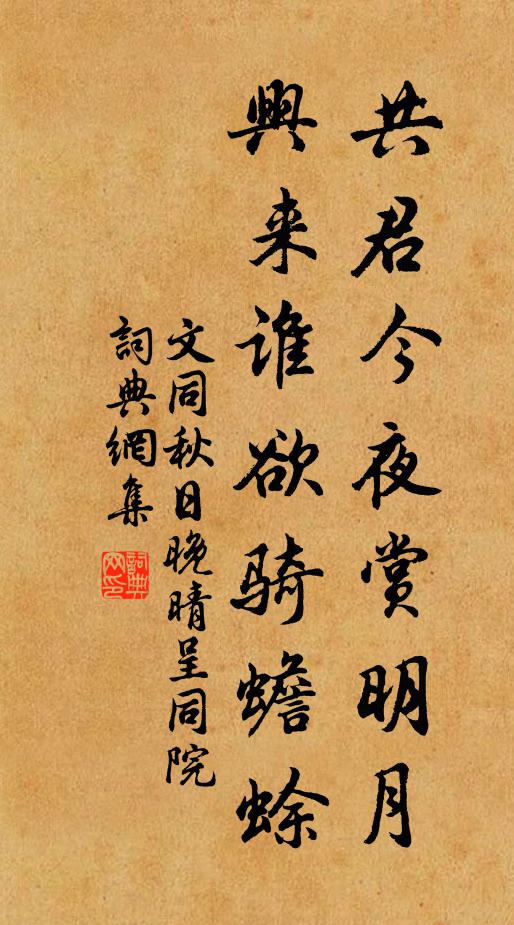 共君今夜賞明月
興来誰欲骑蟾蜍
文同秋日晚晴呈同院
詞典網集
詞典網印